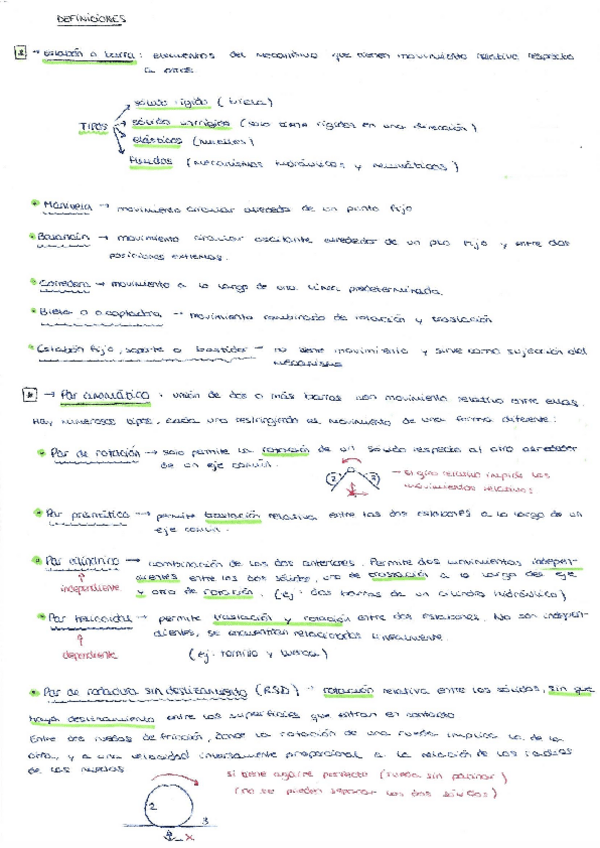 DEFINICIONES
→ eslabón o barra : elementos del mecanismo que tienen movimiento relativo respecto
a otros
Tipos
sólido rígido (biela)
sólido unirígido (solo rígidos en una dirección)
elásticos (muelles)
fluidos (mecanismos hidráulicos y neumáticos)
Manivela → movimiento circular alrededor de un punto fijo
Balancín → movimiento circular oscilante alrededor de un pto fijo y entre dos
posiciones extremas.
Corredera → movimiento a lo largo de una línea predeterminada.
Biela o acopladora → movimiento combinado de rotación y traslación
Eslabón fijo, soporte o bastidor → no tiene movimiento y sirve como sujeción del
mecanismo
→ Par cinemático : unión de dos o más barras con movimiento relativo entre ellas.
Hay numerosos tipos, cada uno restringiendo el movimiento de una forma diferente:
Par de rotación → solo permite la rotación de un sólido respecto al otro alrededor
de un eje común.
2 3
→ el giro relativo impide los
movimientos relativos
Par prismático → permite traslación relativa entre los dos eslabones a lo largo de un
eje común.
Par cilíndrico → combinación de los dos anteriores. Permite dos movimientos indepen-
independiente
dientes entre los dos sólidos, uno de traslación a lo largo del eje
y otro de rotación. (ej: dos barras de un cilindro hidráulico)
Par helicoidal → permite traslación y rotación entre dos eslabones. No son indepen-
dientes, se encuentran relacionados linealmente.
dependiente
(ej: tornillo y tuerca)
Par de rodadura sin deslizamiento (RSD) → rotación relativa entre los sólidos, sin que
haya deslizamiento entre las superficies que entran en contacto
Entre dos ruedas de fricción, donde la rotación de una rueda implica la de la
otra, y a una velocidad inversamente proporcional a la relación de los radios
de las ruedas
si tiene agarre perfecto (rueda sin patinar)
(no se pueden separar los dos sólidos)
2
3
x